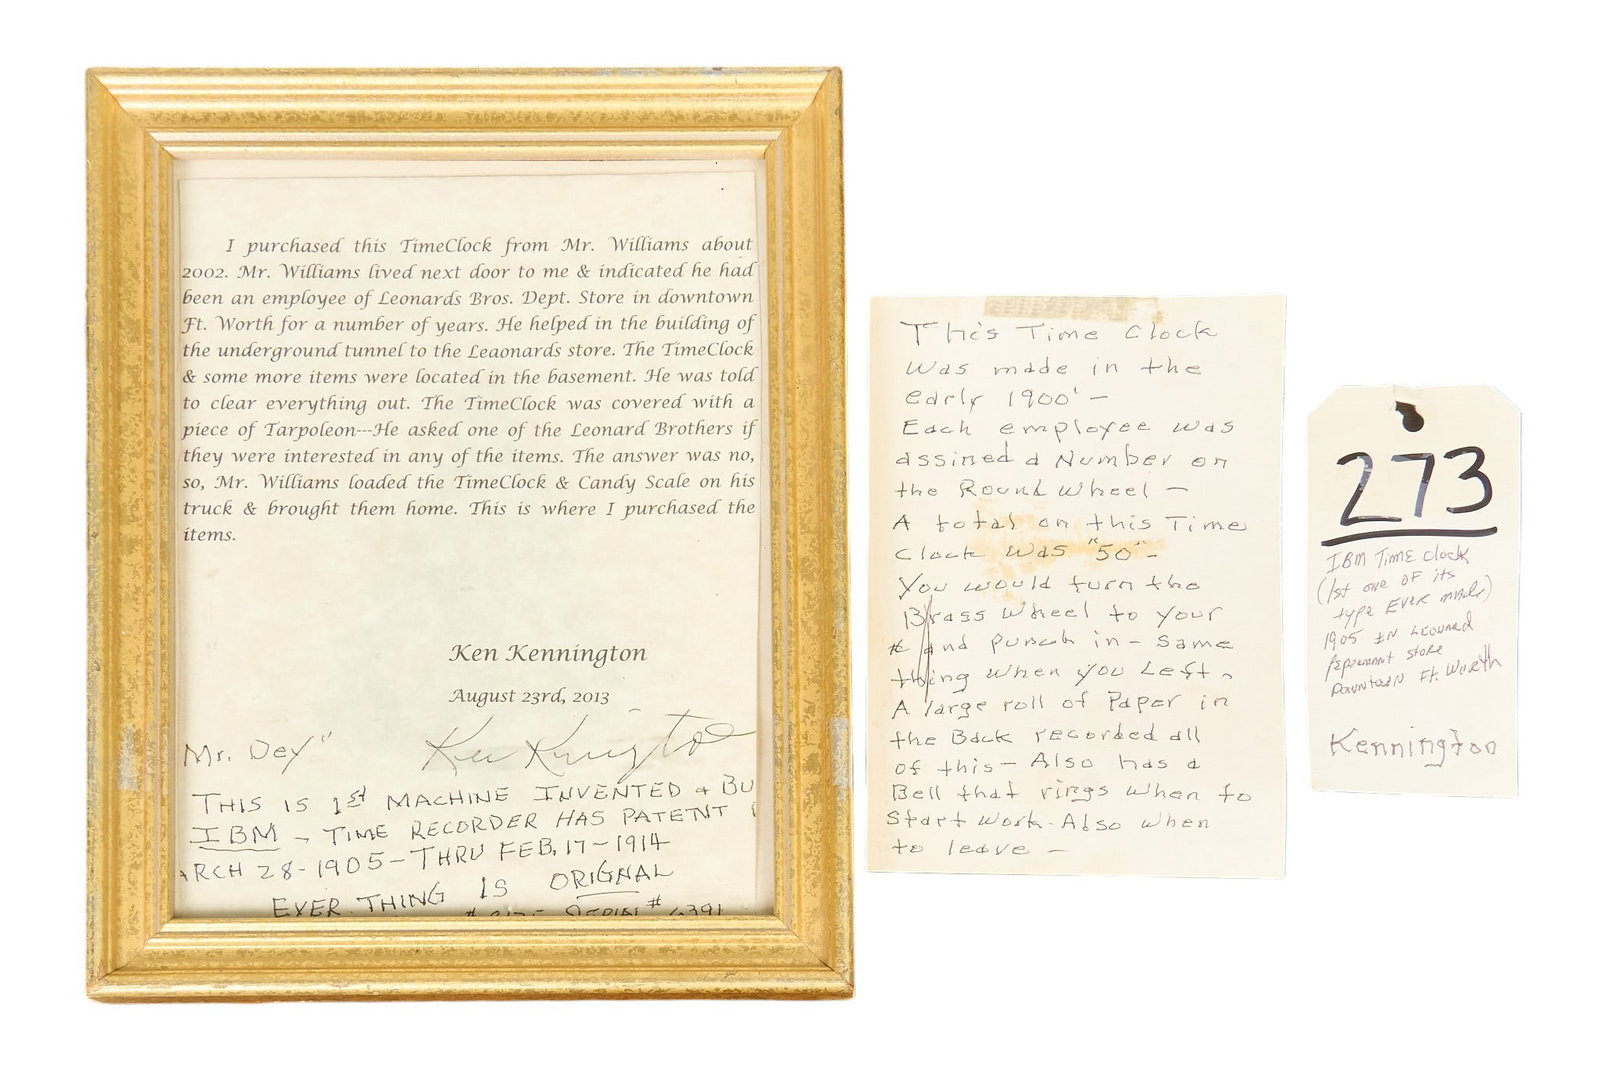 I purchased this TimeClock from Mr. Williams about
2002. Mr. Williams lived next door to me & indicated he had
been an employee of Leonards Bros. Dept. Store in downtown
Ft. Worth for a number of years. He helped in the building of
the underground tunnel to the Leaonards store. The TimeClock
& some more items were located in the basement. He was told
to clear everything out. The TimeClock was covered with a
piece of Tarpoleon---He asked one of the Leonard Brothers if
they were interested in any of the items. The answer was no,
so, Mr. Williams loaded the TimeClock & Candy Scale on his
truck & brought them home. This is where I purchased the
items.
Ken Kennington
August 23rd, 2013
Mr. Dey" Ken Kennington
THIS IS 1st MACHINE INVENTED & BU
IBM - TIME RECORDER HAS PATENT
ARCH 28-1905 - THRU FEB, 17-1914
EVER THING IS ORIGNAL
SERIAL # 6391
This Time Clock
was made in the
early 1900' -
Each employee was
assined a Number on
the Round Wheel -
A total on this Time
Clock was "50" -
You would turn the
Brass Wheel to your
# and punch in - Same
thing when you Left -
A large roll of Paper in
the Back recorded all
of this - Also has a
Bell that rings when to
Start work - Also when
to leave -
273
IBM Time clock
(1st one of its
type Ever made)
1905 IN Leonard
Department Store
Downtown Ft. Worth
Kennington